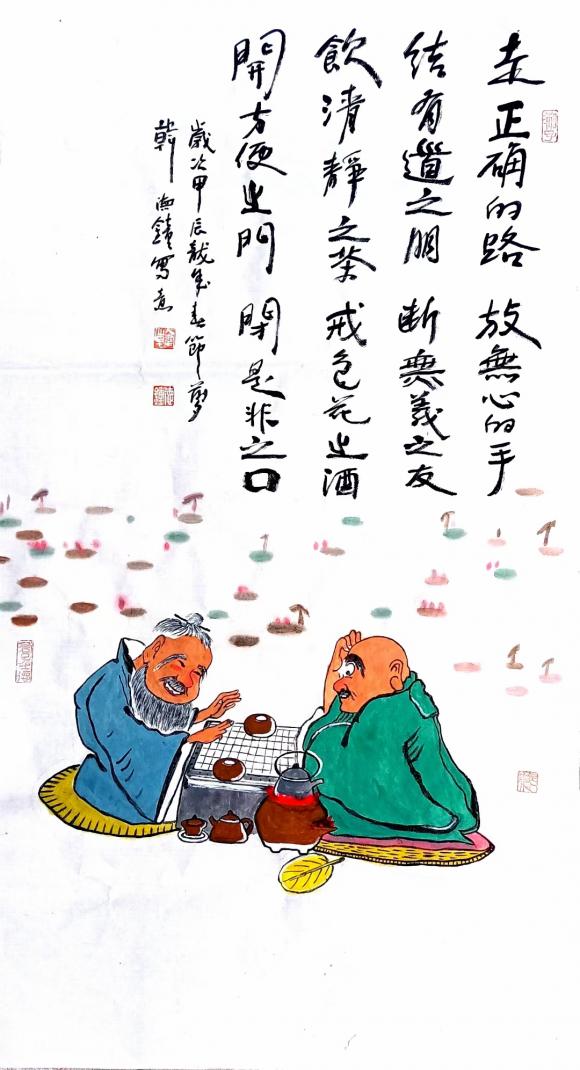 走正确的路 放無心的手
结有道之朋 断無義之友
飲清靜之茶 戒色花之酒
開方便之門 閉是非之口
歲次甲辰龍年春節前夕
韓 寫意